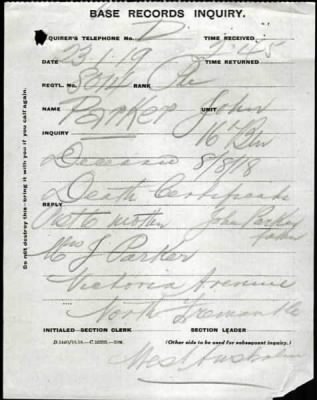 BASE RECORDS INQUIRY.
INQUIRER'S TELEPHONE No. D TIME RECEIVED
DATE 23/1/19 TIME RETURNED
REGTL. No. RANK Pte
NAME PARKER John UNIT 16th Bn
INQUIRY
Deceased 8/8/18
Death Certificate
REPLY
mother John Parker
Mrs J Parker
Victoria Avenue
North Fremantle
INITIALED—SECTION CLERK SECTION LEADER
(Other side to be used for subsequent inquiry.)
West Australia
Do not destroy this—bring it with you if you call again.